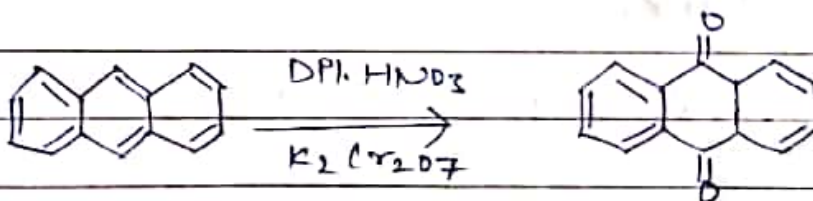 O
DPl. HNO3
K2Cr2O7
O